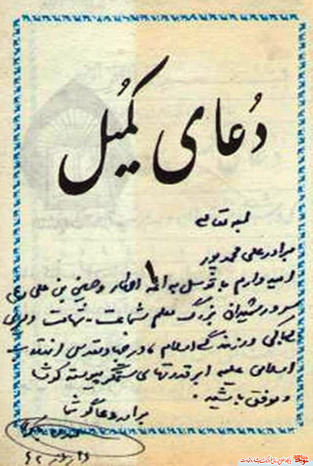 دُعای کُمیل
بسمه تعالی
برادر علی محمد پور
امیدوارم با توسل به ائمه اطهار و حسین بن علی (ع)
سرور شهیدان بزرگ معلم شجاعت - شهامت و
در زندگی اسلام و در جهاد مقدس انقلاب
اسلامی علیه ابرقدرتهای ستمگر پیوسته کوشا
و موفق باشید.
برادر دعاگو شما